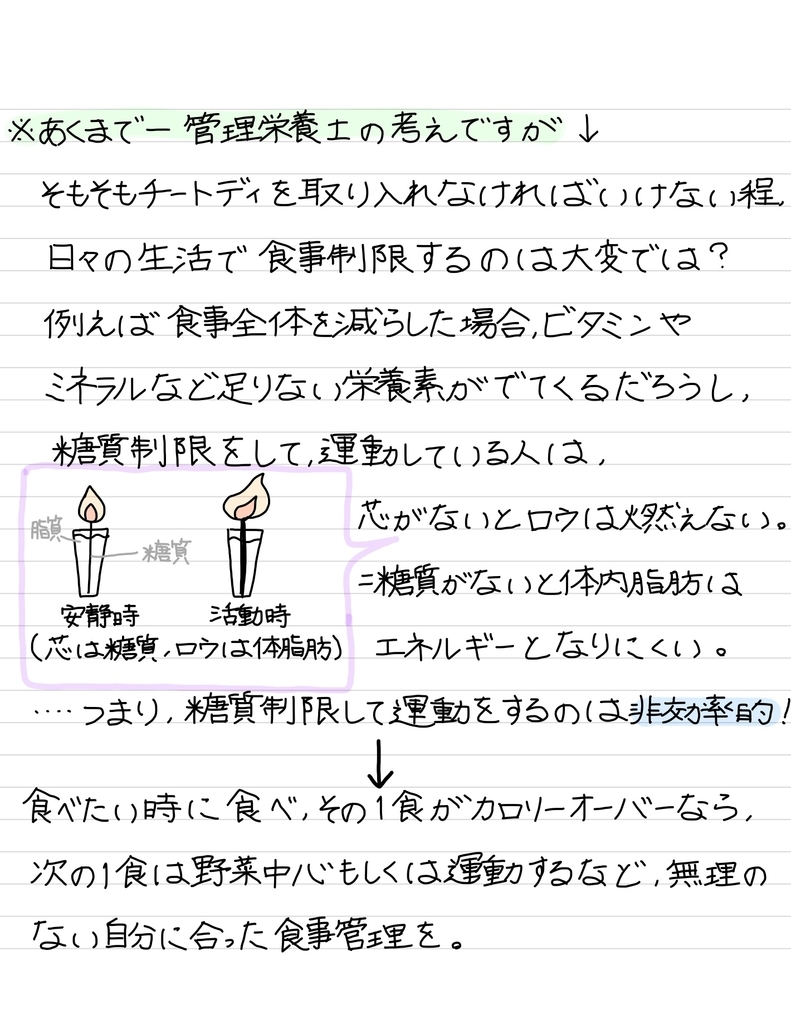 ※あくまで一管理栄養士の考えですが↓
そもそもチートディを取り入れなければいけない程、
日々の生活で食事制限するのは大変では?
例えば食事全体を減らした場合、ビタミンや
ミネラルなど足りない栄養素がでてくるだろうし、
糖質制限をして、運動している人は、
芯がないとロウは燃えない。
=糖質がないと体内脂肪は
エネルギーとなりにくい。
脂質
糖質
安静時
活動時
(芯は糖質、ロウは体脂肪)
‥‥つまり、糖質制限して運動をするのは非効率的!
↓
食べたい時に食べ、その1食がカロリーオーバーなら、
次の1食は野菜中心もしくは運動するなど、無理の
ない自分に合った食事管理を。